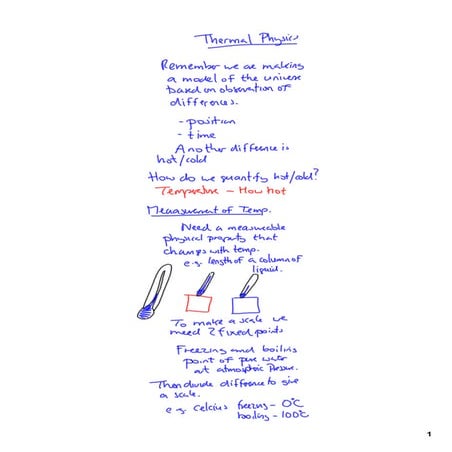 Thermal Physics
Remember we are making
a model of the universe
based on observation of
differences.
- position
- time
Another difference is
hot/cold
How do we quantify hot/cold?
Temperature - How hot
Measurement of Temp.
Need a measureable
physical property that
changes with temp.
e.g. length of a column of
liquid.
To make a scale we
need 2 fixed points
Freezing and boiling
point of pure water
at atmospheric pressure.
Then divide difference to give
a scale.
e.g. Celcius freezing - 0°C
boiling - 100°C
1